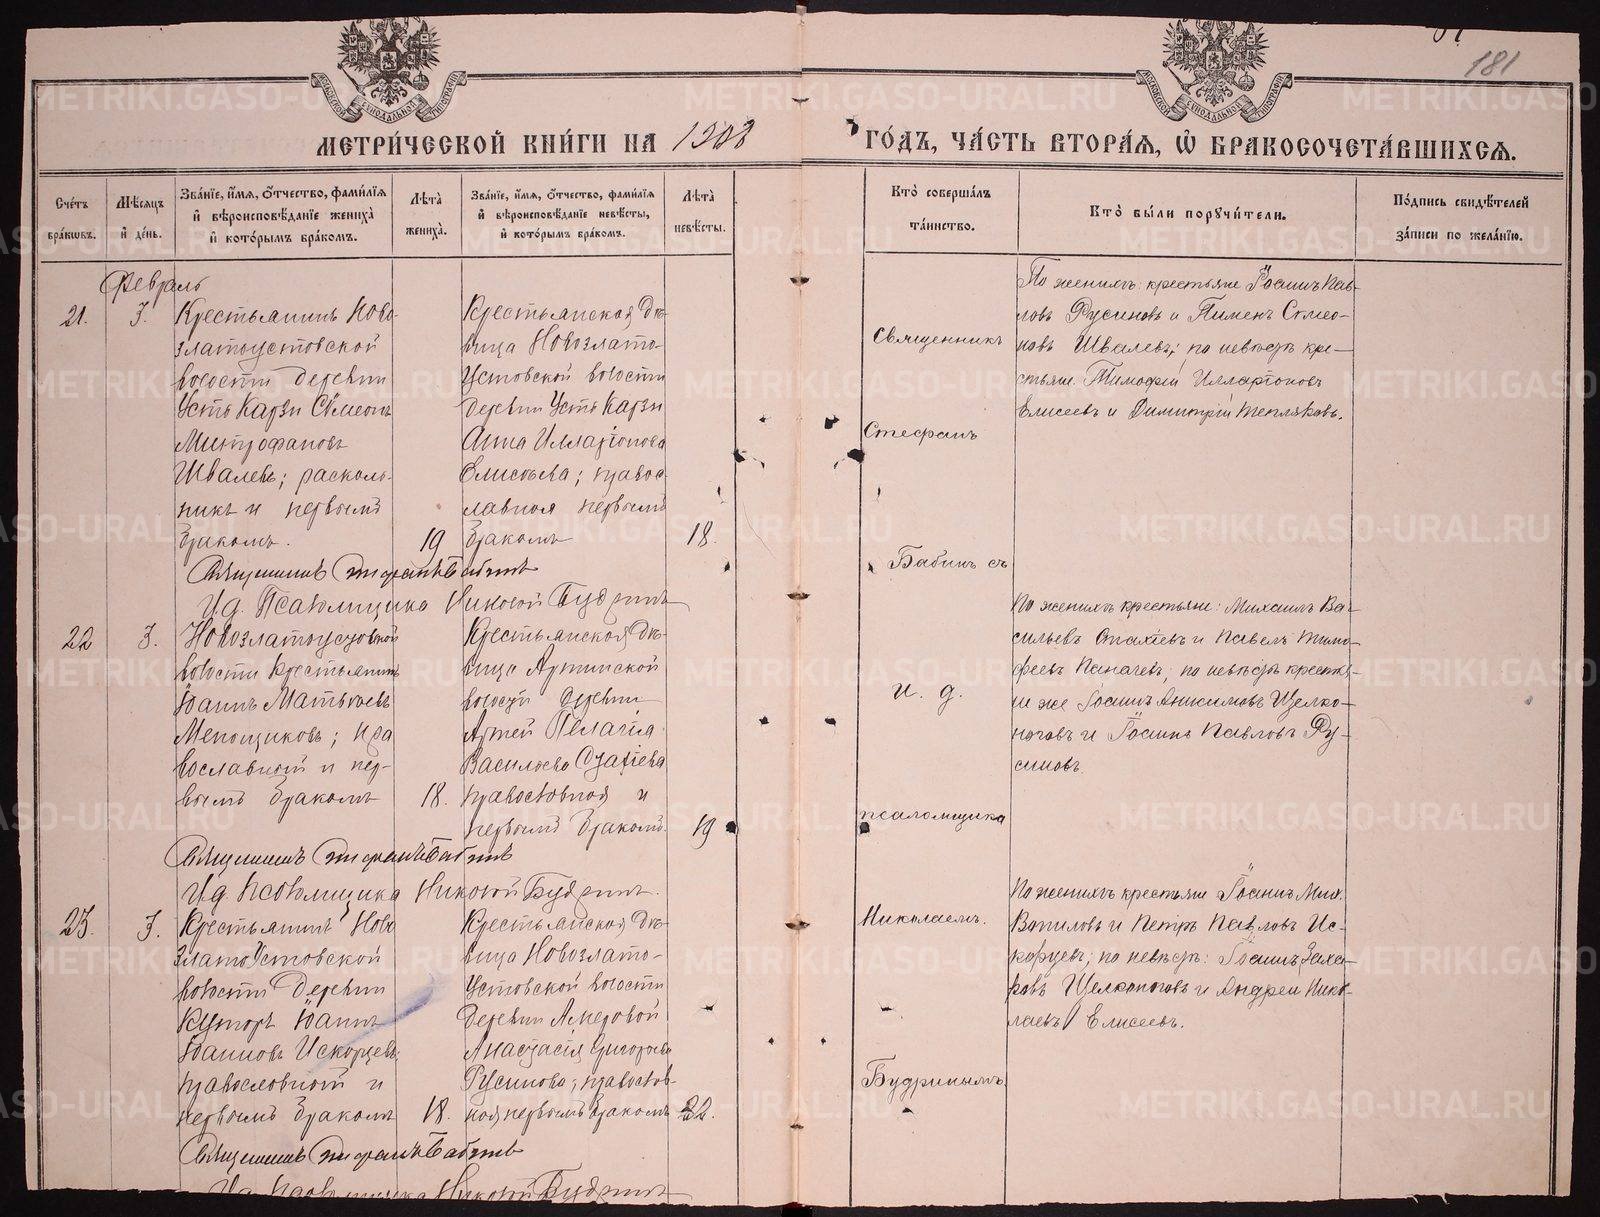 181
МЕТРИ́ЧЕСКОЙ КНИ́ГИ НА 1908 ГО́ДЪ, ЧА́СТЬ ВТОРА́Я, Ѽ БРАКОСОЧЕТА́ВШИХСЯ.
Сче́тъ бра́кѡвъ.
Мѣ́сяцъ и҆ де́нь.
Зва́нїе, и҆́мя, ѻ҆́тчество, фами́лїя и҆ вѣроисповѣ́данїе жениха̀ и҆ кото́рымъ бра́комъ.
Лѣ́та жениха̀.
Зва́нїе, и҆́мя, ѻ҆́тчество, фами́лїя и҆ вѣроисповѣ́данїе невѣ́сты, и҆ кото́рымъ бра́комъ.
Лѣ́та невѣ́сты.
Кто̀ соверша́лъ та́инство.
Кто̀ бы́ли порꙋчи́тели.
По́дпись свидѣ́телей за́писи по жела́нїю.
Февраль
21. 3.
Крестьянинъ Ново-
златоустовской
волости деревни
Усть Карзи Сѵмеонъ
Митрофановъ
Швалевъ; расколь-
никъ и первымъ
бракомъ.
19
Крестьянская дѣ-
вица Новозлато-
устовской волости
деревни Усть Карзи
Анна Илларіонова
Елисѣева; правос-
лавная первымъ
бракомъ
18.
По женихѣ: крестьяне Іоаннъ Пав-
ловъ Русиновъ и Пименъ Симео-
новъ Швалевъ; по невѣстѣ кре-
стьяне Тимофей Илларіоновъ
Елисеевъ и Димитрій Тепляковъ.
Священникъ Стефанъ Бабинъ
И.д. Псаломщика Николай Будринъ
22 3.
Новозлатоустовской
волости крестьянинъ
Іоаннъ Матвѣевъ
Меньщиковъ; пра
вославный и пер-
вымъ бракомъ
18.
Крестьянская дѣ-
вица Артинской
волости деревни
Артей Пелагія
Васильева Стахіева
православная и
первымъ бракомъ.
19
По женихѣ крестьяне: Михаилъ Ва-
сильевъ Стахіевъ и Павелъ Тимо-
феевъ Паначевъ; по невѣстѣ крестья-
не же Іоаннъ Анисимовъ Щелко-
ноговъ и Іоаннъ Павловъ Ру-
синовъ.
Священникъ Стефанъ Бабинъ
И.д. Псаломщика Николай Будринъ.
23. 3.
Крестьянинъ Ново
златоустовской
волости деревни
Куторъ Іоаннъ
Іоанновъ Искорцевъ;
православной и
первымъ бракомъ
18.
Крестьянская дѣ-
вица Новозлато-
устовской волости
деревни Амеровой
Анастасія Григорьева
Русинова; православ-
ная первымъ бракомъ
22.
По женихѣ крестьяне Іоаннъ Мих.
Вопиловъ и Петръ Павловъ Ис-
корцевъ; по невѣстѣ: Іоаннъ Заха-
ровъ Щелконоговъ и Андрей Нико-
лаевъ Елисеевъ.
Священникъ Стефанъ Бабинъ
И.д. Псаломщика Николай Будринъ
Священникъ
Стефанъ
Бабинъ съ
и. д.
псаломщика
Николаемъ.
Будринымъ.
METRIKI.GASO-URAL.RU